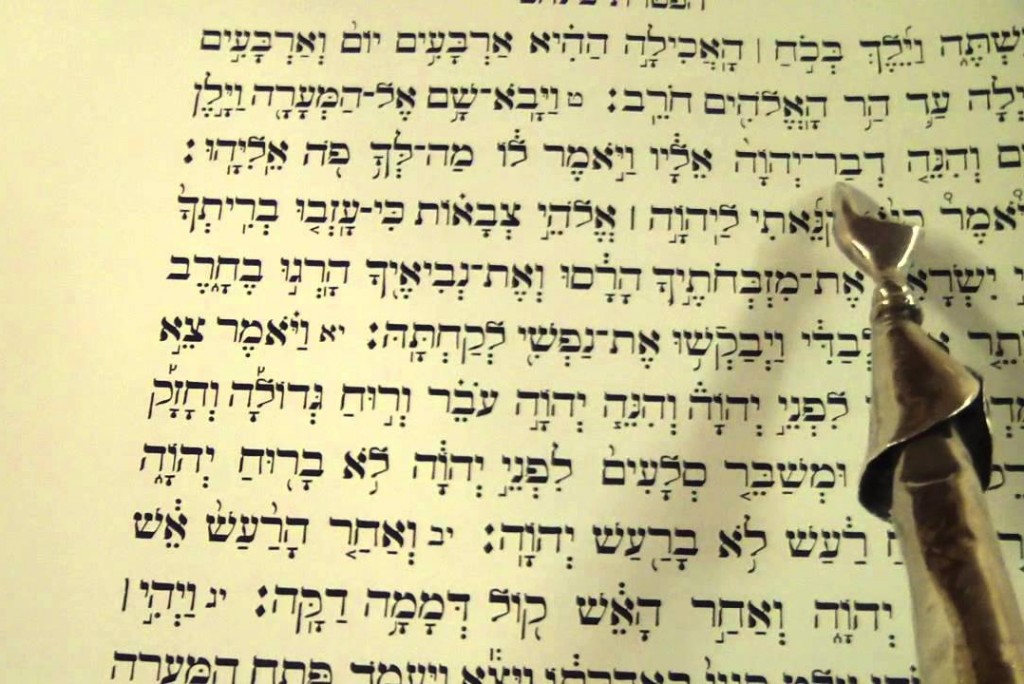 וַיֵּ֜לֶךְ בְּכֹ֣חַ ׀ הָאֲכִילָ֣ה הַהִ֗יא אַרְבָּעִ֥ים יוֹם֙ וְאַרְבָּעִ֣ים
עַ֛ד הַ֥ר הָאֱלֹהִ֖ים חֹרֵֽב׃ ט וַיָּבֹא־שָׁ֥ם אֶל־הַמְּעָרָ֖ה וַיָּ֣לֶן
וְהִנֵּ֤ה דְבַר־יְהוָה֙ אֵלָ֔יו וַיֹּ֣אמֶר ל֔וֹ מַה־לְּךָ֥ פֹ֖ה אֵלִיָּֽהוּ׃
לַיהוָ֣ה ׀ אֱלֹהֵ֣י צְבָא֗וֹת כִּֽי־עָזְב֤וּ בְרִֽיתְךָ֙
אֶת־מִזְבְּחֹתֶ֣יךָ הָרָ֔סוּ וְאֶת־נְבִיאֶ֖יךָ הָרְג֣וּ בֶחָ֑רֶב
לְבַדִּ֔י וַיְבַקְשׁ֥וּ אֶת־נַפְשִׁ֖י לְקַחְתָּֽהּ׃ יא וַיֹּ֗אמֶר צֵ֣א
לִפְנֵ֣י יְהוָה֒ וְהִנֵּ֧ה יְהוָ֣ה עֹבֵ֗ר וְר֣וּחַ גְּדוֹלָ֡ה וְחָזָ֞ק
וּמְשַׁבֵּ֤ר סְלָעִים֙ לִפְנֵ֣י יְהוָ֔ה לֹ֥א בָר֖וּחַ יְהוָ֑ה
רַ֔עַשׁ לֹ֥א בָרַ֖עַשׁ יְהוָֽה׃ יב וְאַחַ֤ר הָרַ֙עַשׁ֙ אֵ֔שׁ
יְהוָ֑ה וְאַחַ֣ר הָאֵ֔שׁ ק֖וֹל דְּמָמָ֥ה דַקָּֽה׃ יג וַיְהִ֣י ׀
וַיֵּצֵ֕א וַֽיַּעֲמֹ֖ד פֶּ֣תַח הַמְּעָרָ֑ה